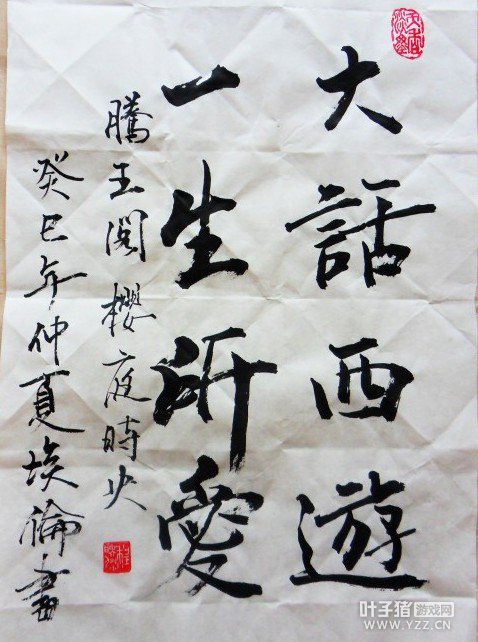 大話西遊
一生所愛
騰王閣櫻庭時火
癸巳年仲夏埃倫書
叶子猪游戏网
WWW.YZZ.CN